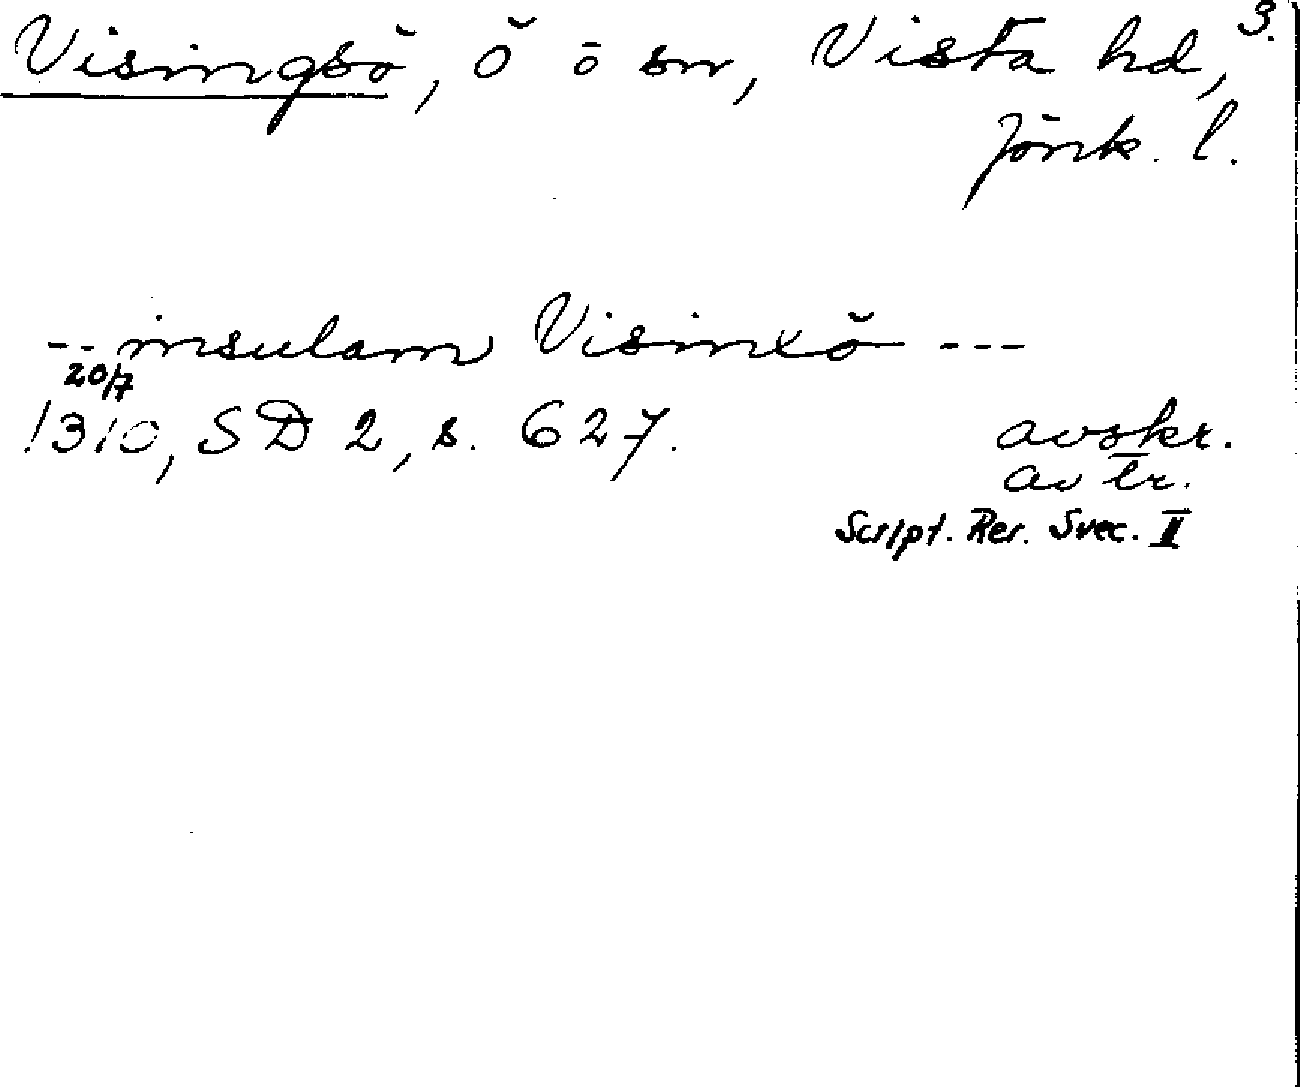 3.
Visingsö, ö o sn, Vista hd,
Jönk. l.
-- insulam Visinxö ---
20/7
1310, SD 2, s. 627.
avskr.
av tr.
Script. Rer. Svec. II